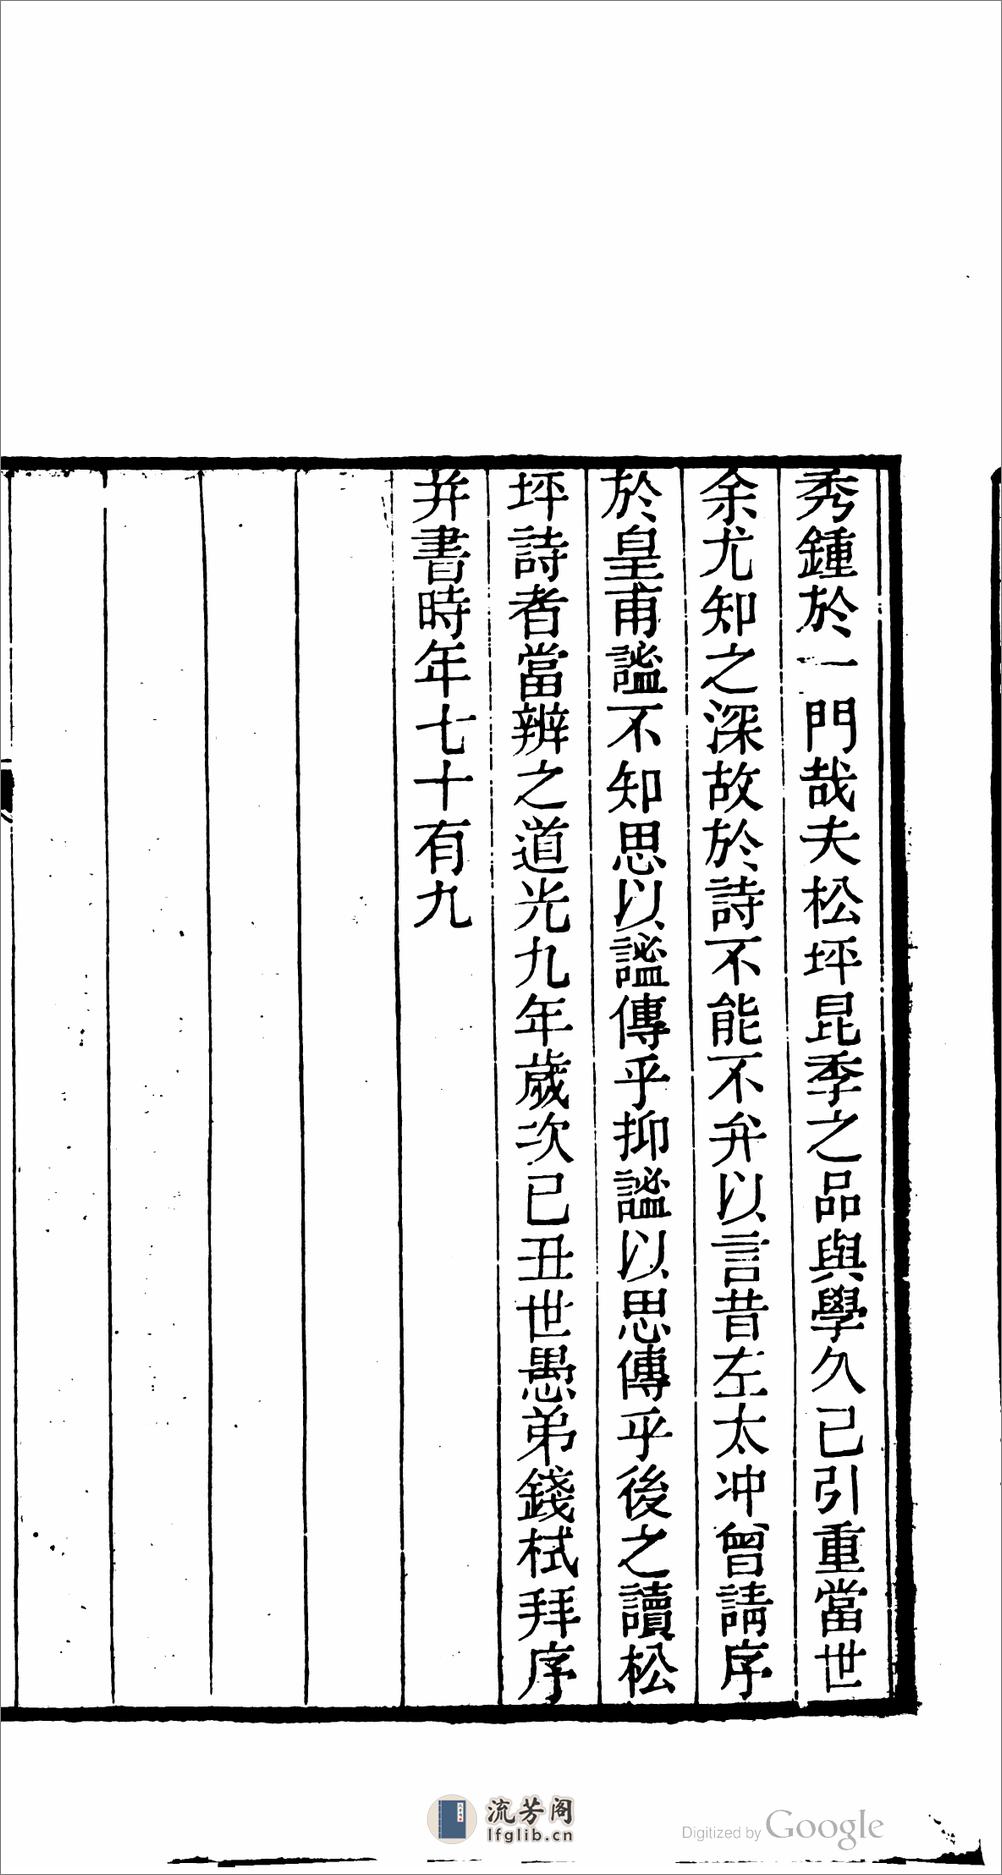 秀鍾於一門哉夫松坪昆季之品與學久已引重當世
余尤知之深故於詩不能不弁以言昔左太冲曾請序
於皇甫謐不知思以謐傳乎抑謐以思傳乎後之讀松
坪詩者當辨之道光九年歲次已丑世愚弟錢栻拜序
并書時年七十有九
流芳阁
lfglib.cn
Digitized by Google